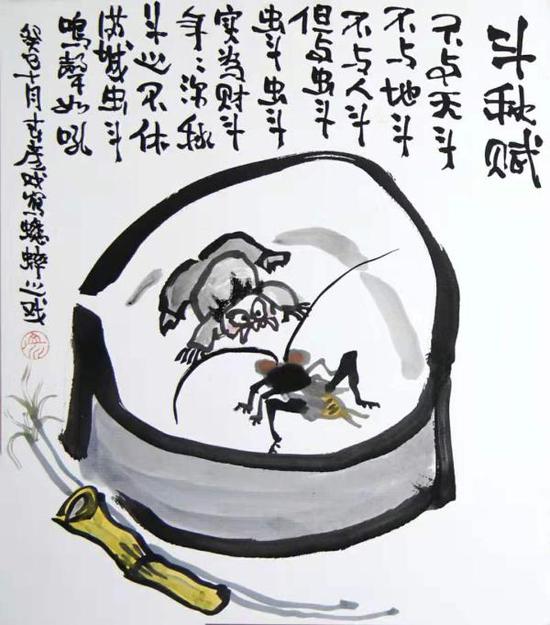 斗秋赋
不与天斗
不与地斗
不与人斗
但与虫斗
虫斗虫斗
实為财斗
年々深秋
斗心不休
满城虫斗
鸣聲如吼
癸巳十月 戏写蟋蟀之戏